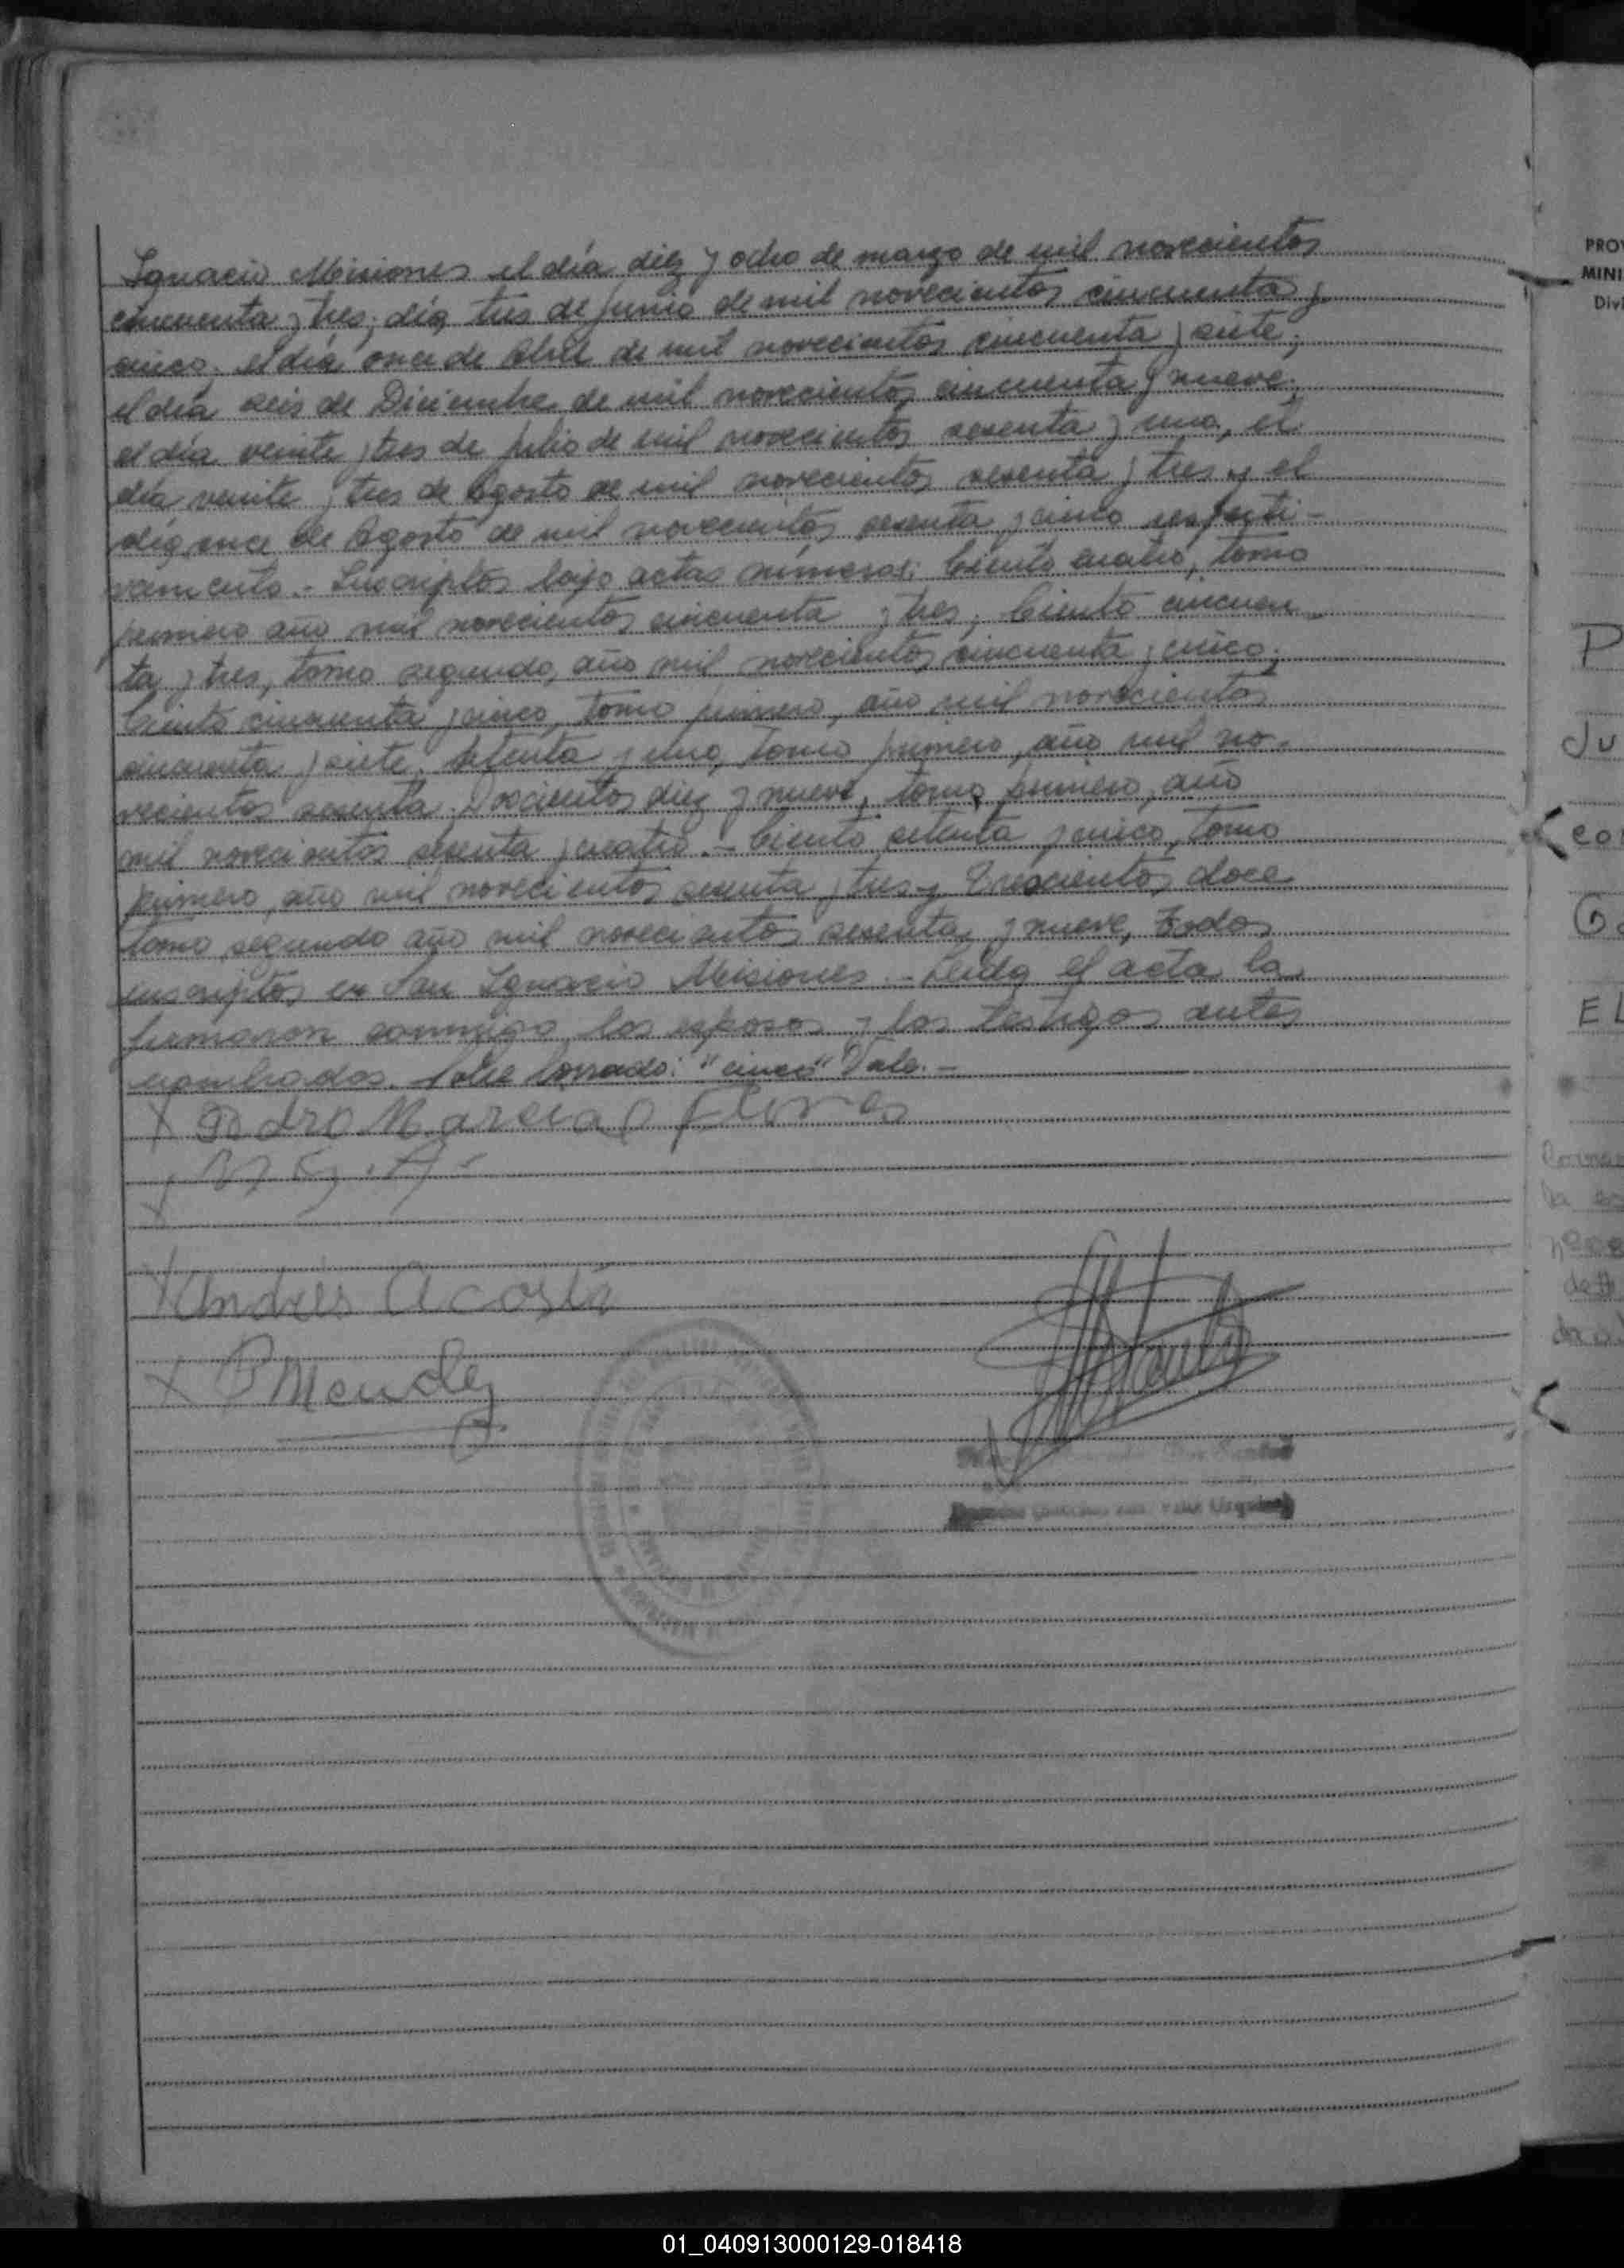 Ignacio Misiones el día diez y ocho de marzo de mil novecientos
cincuenta y tres; día tres de junio de mil novecientos cincuenta y
cinco; el día once de Abril de mil novecientos cincuenta y siete;
el día seis de Diciembre de mil novecientos cincuenta y nueve;
el día veinte y tres de julio de mil novecientos sesenta y uno, el
día veinte y tres de Agosto de mil novecientos sesenta y tres y el
día once de Agosto de mil novecientos sesenta y cinco respecti-
vamente.- Inscriptos bajo actas números; Ciento cuatro, tomo
primero año mil novecientos cincuenta y tres; Ciento cincuen
ta y tres, tomo segundo, año mil novecientos cincuenta y cinco;
Ciento cincuenta y cinco, tomo primero, año mil novecientos
cincuenta y siete, Setenta y uno, tomo primero, año mil no-
vecientos sesenta; Doscientos diez y nueve, tomo primero, año
mil novecientos sesenta y cuatro.- Ciento setenta y cinco, tomo
primero, año mil novecientos sesenta y tres y Trescientos doce
tomo segundo año mil novecientos sesenta y nueve, todos
inscriptos en San Ignacio Misiones.- Leída el acta la
firmaron conmigo los esposos y los testigos antes
nombrados. Sobre borrado: "cinco" Vale.-
X Pedro Marcial Flores
X
X Andres Acosta
X P Mendez
PRO
MINI
Div
P
Ju
co
G
EL
01_040913000129-018418